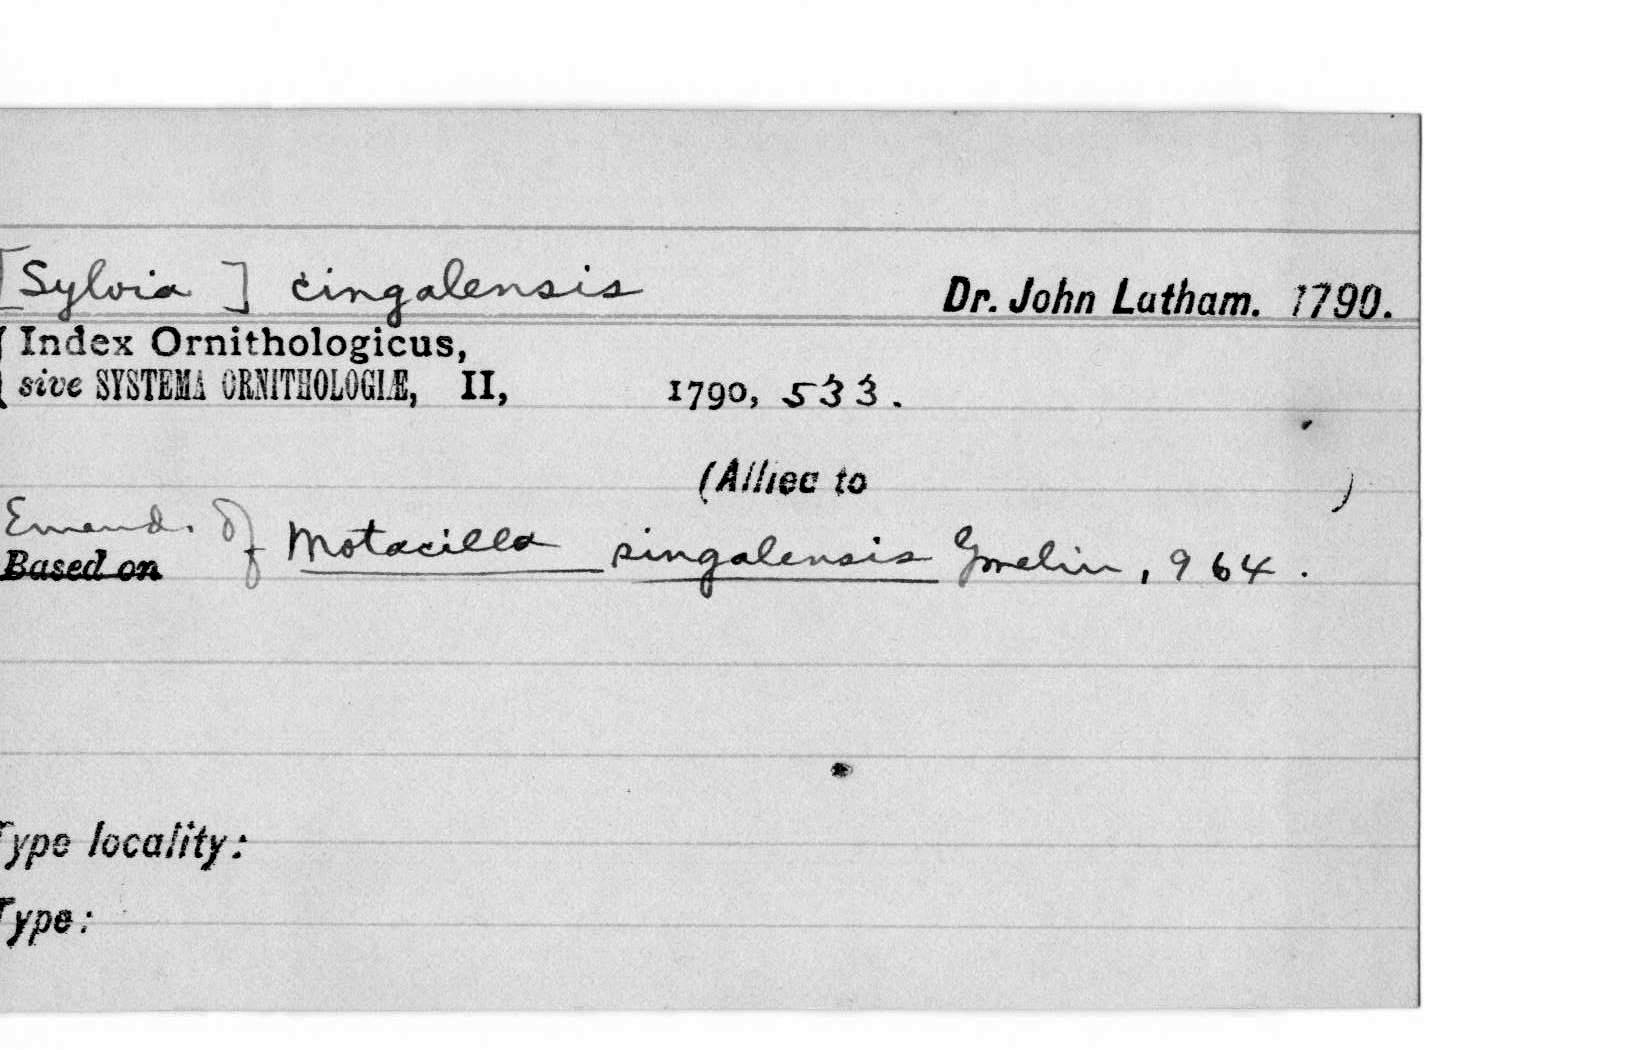 [Sylvia ] cingalensis Dr. John Latham. 1790.
Index Ornithologicus,
sive SYSTEMA ORNITHOLOGIÆ, II, 1790, 533.
(Allied to )
Emend. of Motacilla singalensis Gmelin, 964.
Based on
Type locality:
Type: